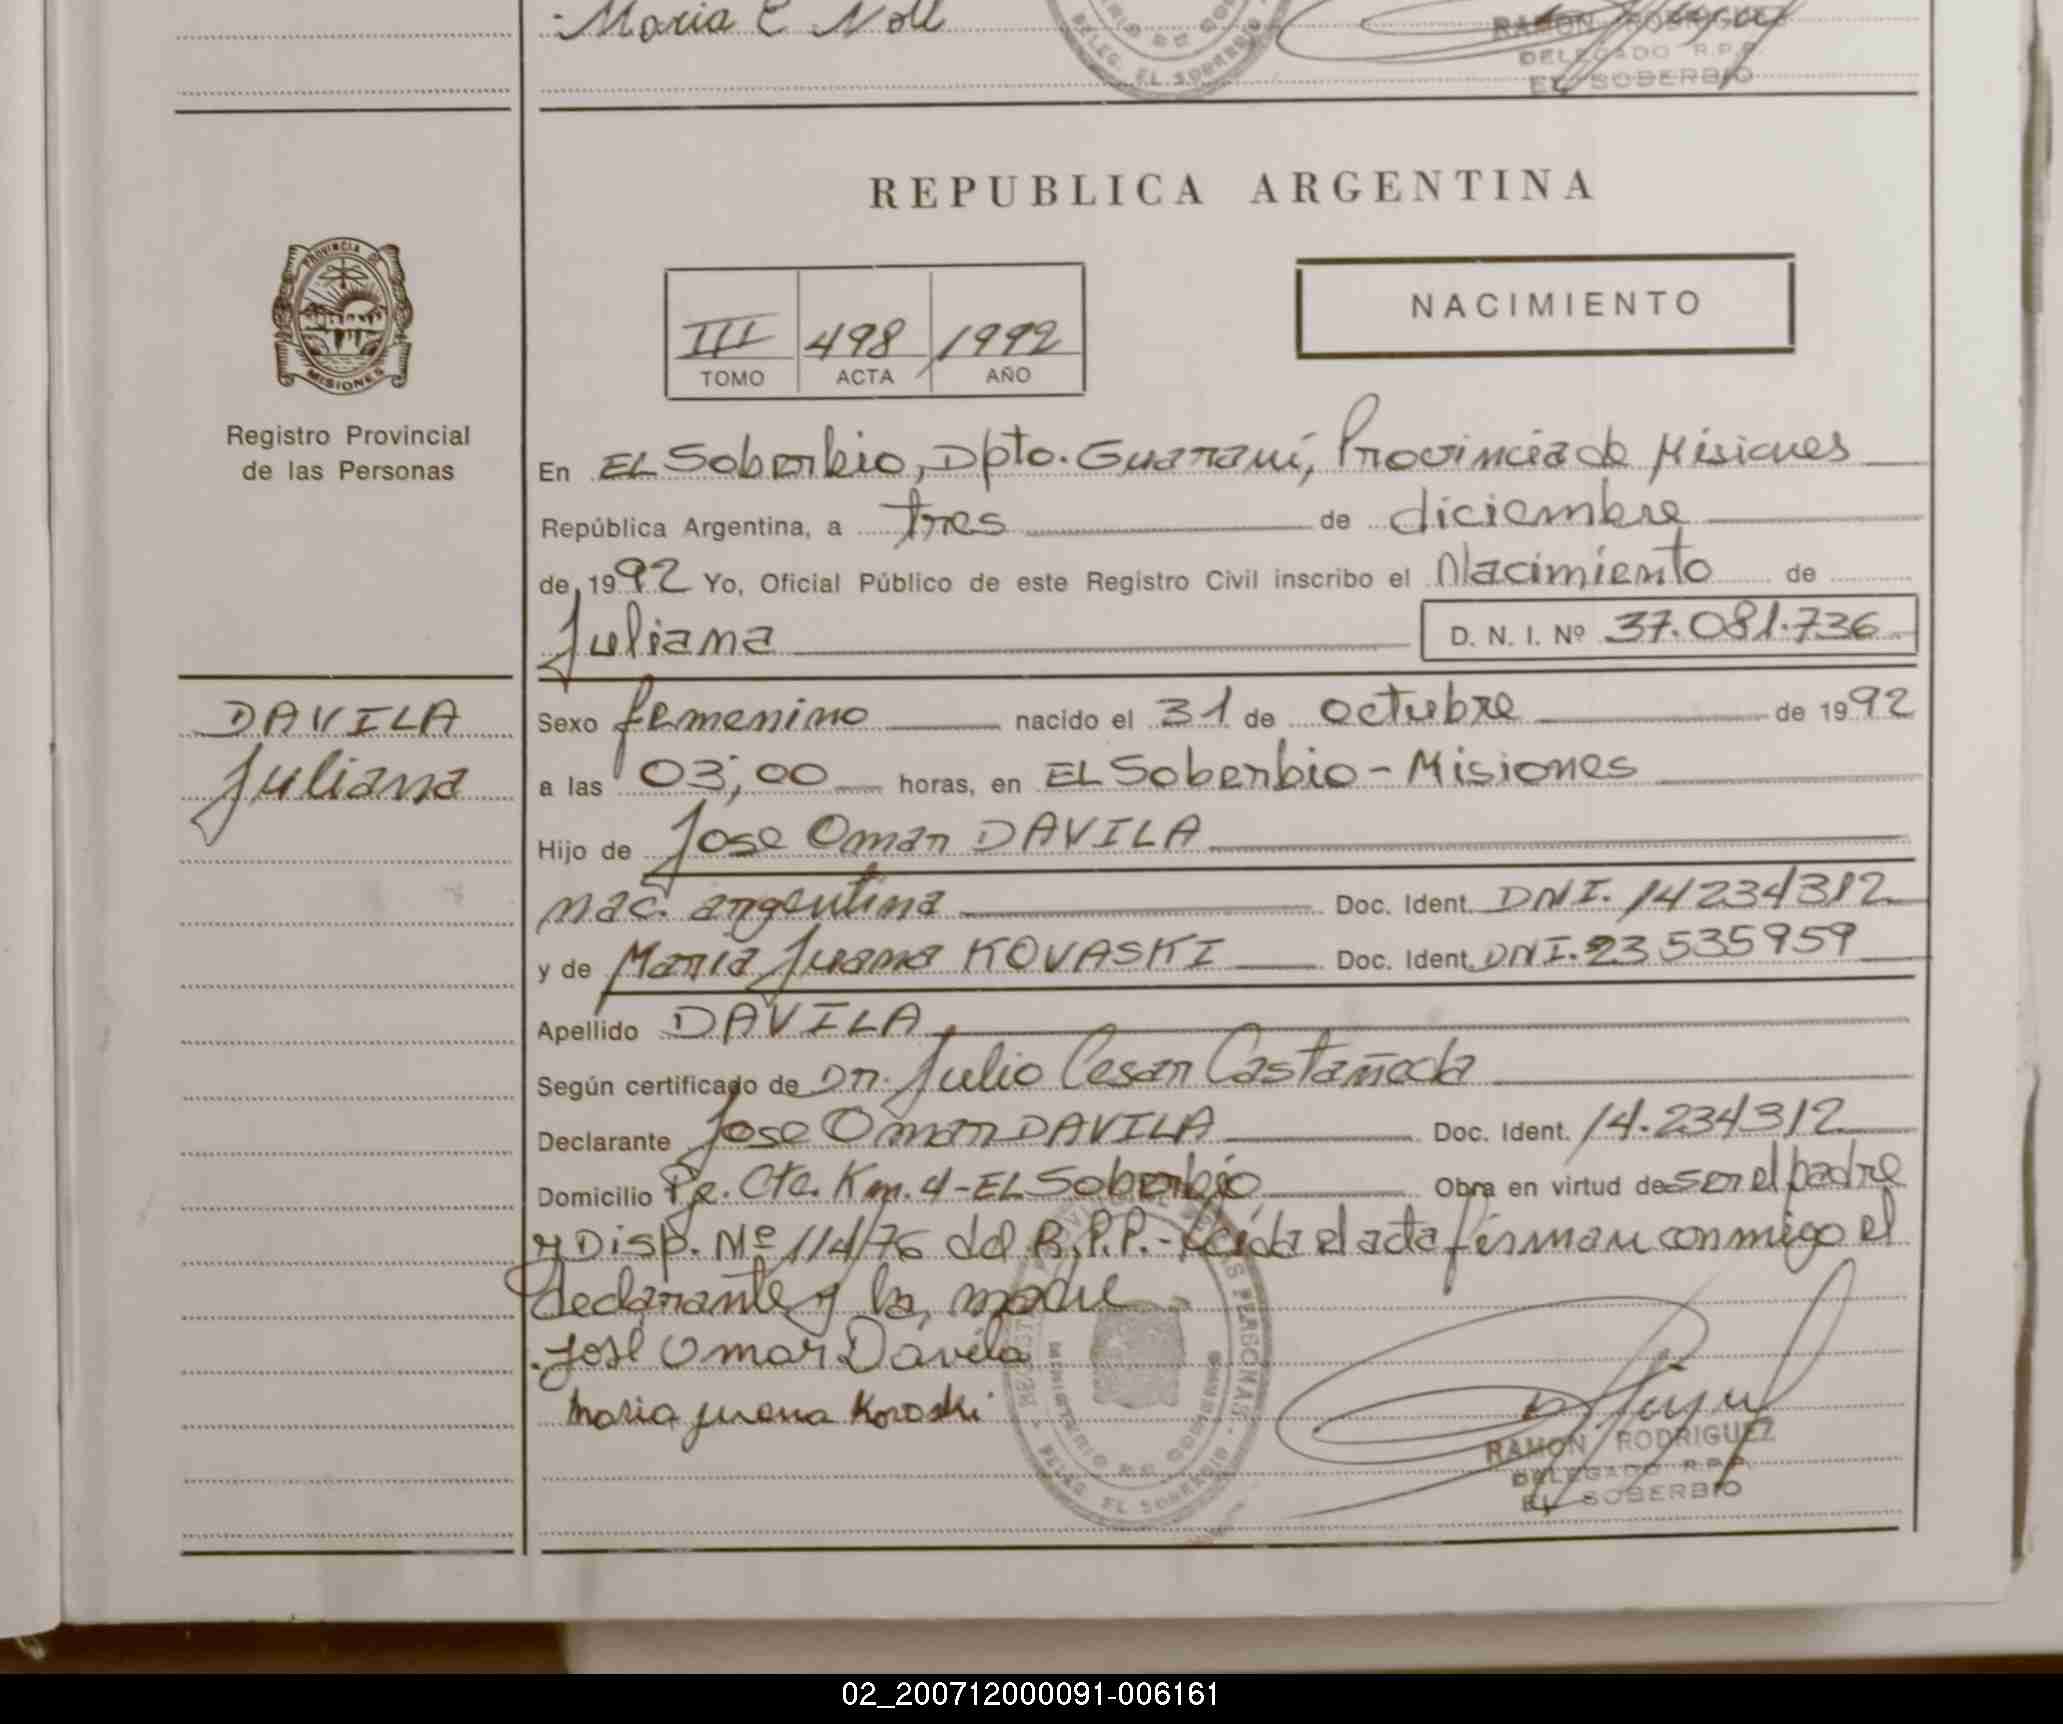 Maria E Noll
DELEG. EL SOBERBIO
RAMON RODRIGUEZ
DELEGADO R.P.P.
EL SOBERBIO
REPUBLICA ARGENTINA
PROVINCIA DE MISIONES
Registro Provincial
de las Personas
III 498 1992
TOMO ACTA AÑO
NACIMIENTO
En EL Soberbio, Dpto. Guaraní, Provincia de Misiones
República Argentina, a tres de diciembre
de 1992 Yo, Oficial Público de este Registro Civil inscribo el Nacimiento de
Juliana D. N. I. Nº 37.081.736
DAVILA
Juliana
Sexo femenino nacido el 31 de octubre de 1992
a las 03;00 horas, en EL Soberbio - Misiones
Hijo de Jose Omar DAVILA
nac. argentina Doc. Ident. DNI. 14234312
y de Maria Juana KOVASKI Doc. Ident. DNI. 23535959
Apellido DAVILA
Según certificado de Dr. Julio Cesar Castañeda
Declarante Jose Omar DAVILA Doc. Ident. 14.234312
Domicilio Pje. Cte. Km. 4 - EL Soberbio Obra en virtud de ser el padre
y Disp. Nº 114/76 del R.P.P. - Leída el acta firman conmigo el
declarante y la madre
José Omar Davila
Maria Juana Kovaski
DELEG. EL SOBERBIO
RAMON RODRIGUEZ
DELEGADO R.P.P.
EL SOBERBIO
02_200712000091-006161